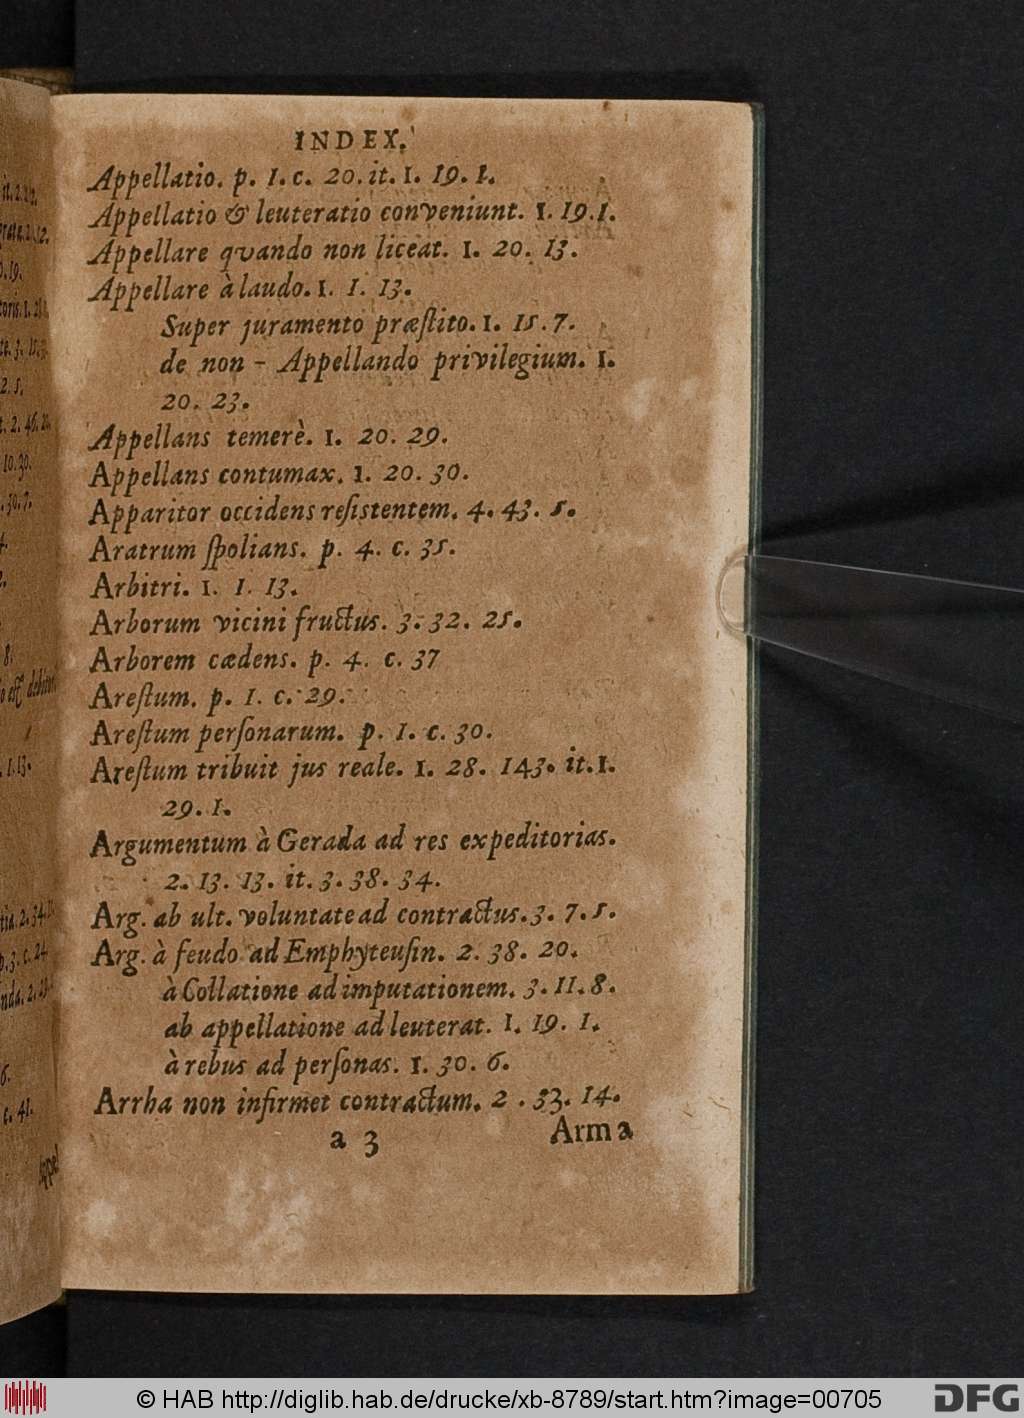 INDEX.
Appellatio. p. 1. c. 20. it. 1. 19. 1.
Appellatio & leuteratio conveniunt. 1. 19. 1.
Appellare qvando non liceat. 1. 20. 13.
Appellare à laudo. 1. 1. 13.
Super juramento præſtito. 1. 15. 7.
de non - Appellando privilegium. 1.
20. 23.
Appellans temerè. 1. 20. 29.
Appellans contumax. 1. 20. 30.
Apparitor occidens reſistentem. 4. 43. 5.
Aratrum ſpolians. p. 4. c. 35.
Arbitri. 1. 1. 13.
Arborum vicini fructus. 3. 32. 25.
Arborem cædens. p. 4. c. 37
Areſtum. p. 1. c. 29.
Areſtum perſonarum. p. 1. c. 30.
Areſtum tribuit jus reale. 1. 28. 143. it. 1.
29. 1.
Argumentum à Gerada ad res expeditorias.
2. 13. 13. it. 3. 38. 34.
Arg. ab ult. voluntate ad contractus. 3. 7. 5.
Arg. à feudo ad Emphyteuſin. 2. 38. 20.
à Collatione ad imputationem. 3. 11. 8.
ab appellatione ad leuterat. 1. 19. 1.
à rebus ad perſonas. 1. 30. 6.
Arrha non infirmet contractum. 2. 53. 14.
a 3 Arma
it. 2.
2.
19.
2. 5.
2. 46.
10. 30.
30. 7.
4.
8.
1. 13.
2. 34.
p. 3. c. 24.
6.
c. 41.
Appel
© HAB http://diglib.hab.de/drucke/xb-8789/start.htm?image=00705
DFG